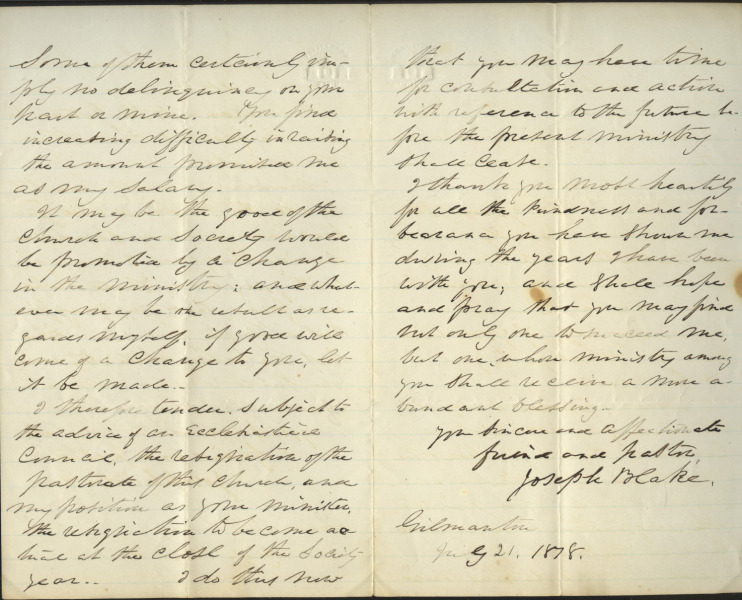 Some of them certainly im-
ply no delinquency on your
part or mine. You find
increasing difficulty in raising
the amount promised me
as my salary.
It may be the good of the
Church and Society would
be promoted by a change
in the ministry; and what-
ever may be the result as re-
gards myself, if good will
come of a change to you, let
it be made.-
I therefore tender, subject to
the advice of an Ecclesiastical
Council, the resignation of the
pastorate of this church, and
my position as your minister,
the resignation to become ac-
tual at the close of the Society
year.. I do this now
that you may have time
for consultation and action
with reference to the future be-
fore the present ministry
shall cease.
I thank you most heartily
for all the kindness and for-
bearance you have shown me
during the years I have been
with you; and shall hope
and pray that you may find
not only one to succeed me,
but one, whose ministry among
you shall receive a more a-
bundant blessing.-
Your sincere and affectionate
friend and pastor,
Joseph Blake.
Gilmanton
July 21. 1878.